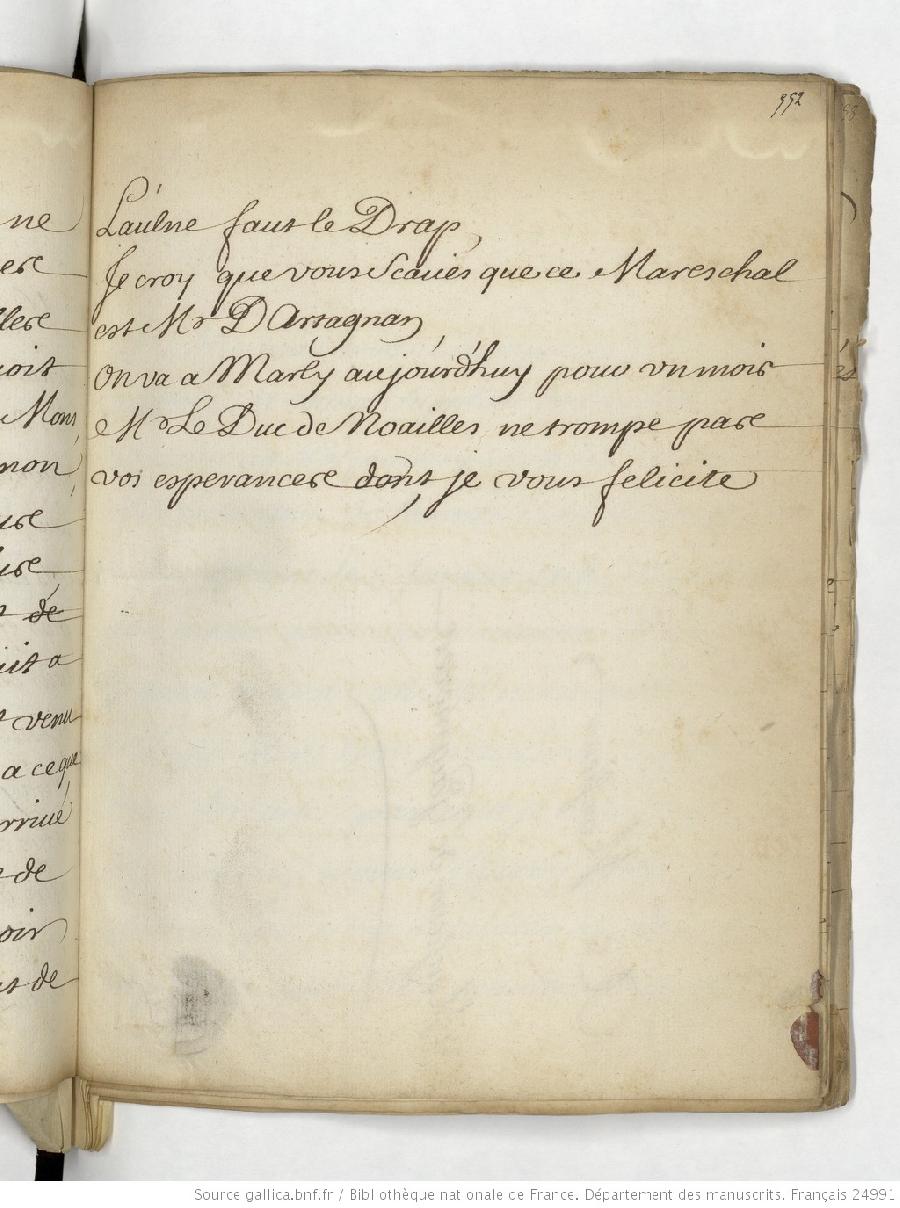 352
L'aulne faut le Drap,
Je croy que vous scavés que ce Mareschal
est Mr D'Artagnan
On va a Marly aujourd'huy pour un mois
Mr Le Duc de Noailles ne trompe pas
vos esperances dont je vous felicite
ne
Mons
mon
de
venu
a ce que
arrivé
de
de
Source gallica.bnf.fr / Bibliothèque nationale de France. Département des manuscrits. Français 24991